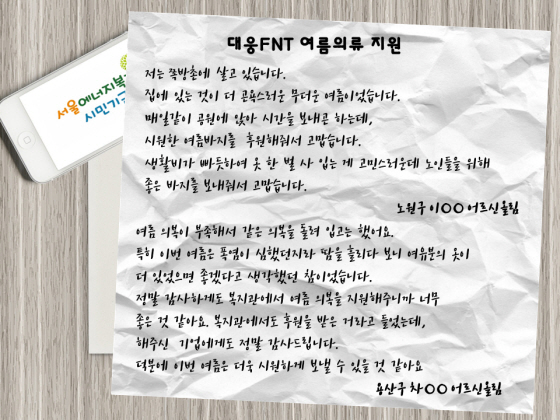 서울에너지복
시민기
대웅FNT 여름의류 지원
저는 쪽방촌에 살고 있습니다.
집에 있는 것이 더 곤욕스러운 무더운 여름이었습니다.
매일같이 공원에 앉아 시간을 보내곤 하는데,
시원한 여름바지를 후원해줘서 고맙습니다.
생활비가 빠듯하여 옷 한 벌 사 입는 게 고민스러운데 노인들을 위해
좋은 바지를 보내줘서 고맙습니다.
노원구 이○○ 어르신올림
여름 의복이 부족해서 같은 의복을 돌려 입고는 했어요.
특히 이번 여름은 폭염이 심했던지라 땀을 흘리다 보니 여유분의 옷이
더 있었으면 좋겠다고 생각했던 참이었습니다.
정말 감사하게도 복지관에서 여름 의복을 지원해주니까 너무
좋은 것 같아요. 복지관에서도 후원을 받은 거라고 들었는데,
해주신 기업에게도 정말 감사드립니다.
덕분에 이번 여름은 더욱 시원하게 보낼 수 있을 것 같아요
용산구 차○○ 어르신올림